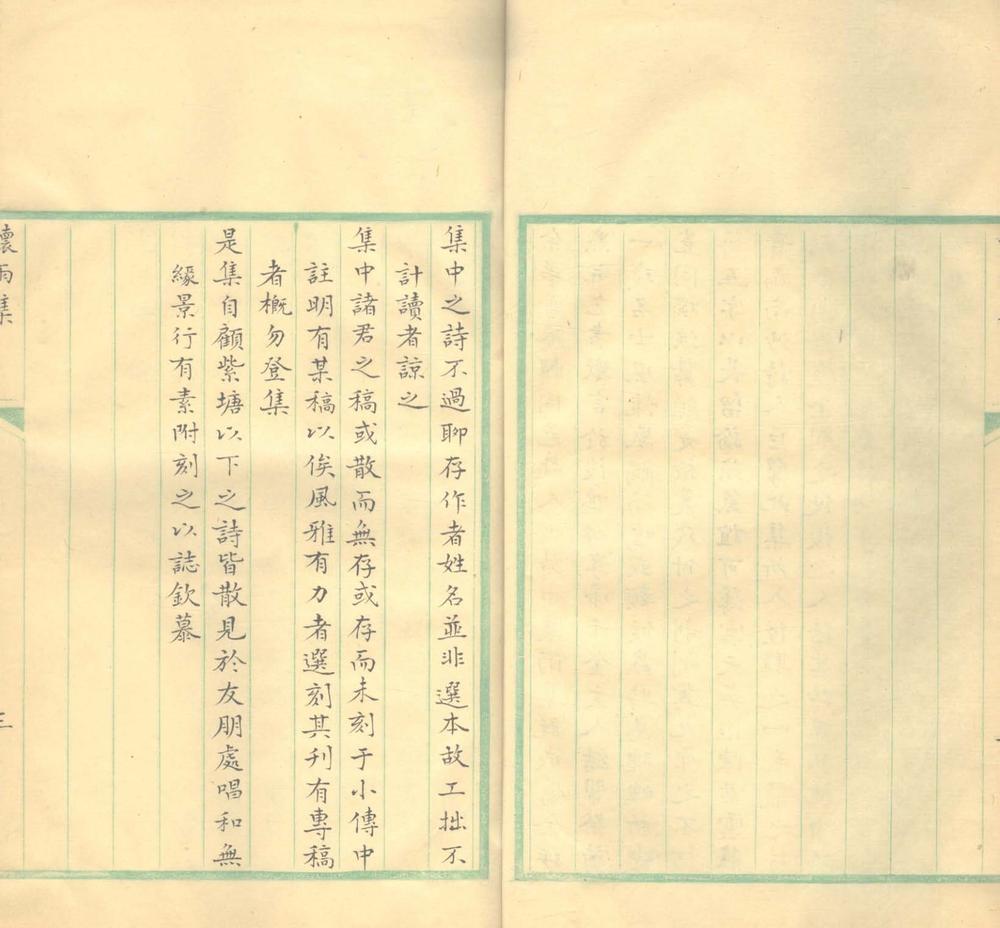 集中之詩不過聊存作者姓名並非選本故工拙不
計讀者諒之
集中諸君之稿或散而無存或存而未刻于小傳中
註明有某稿以俟風雅有力者選刻其刊有專稿
者概勿登集
是集自顧紫塘以下之詩皆散見於友朋處唱和無
緣景行有素附刻之以誌欽慕
懷雨集
三